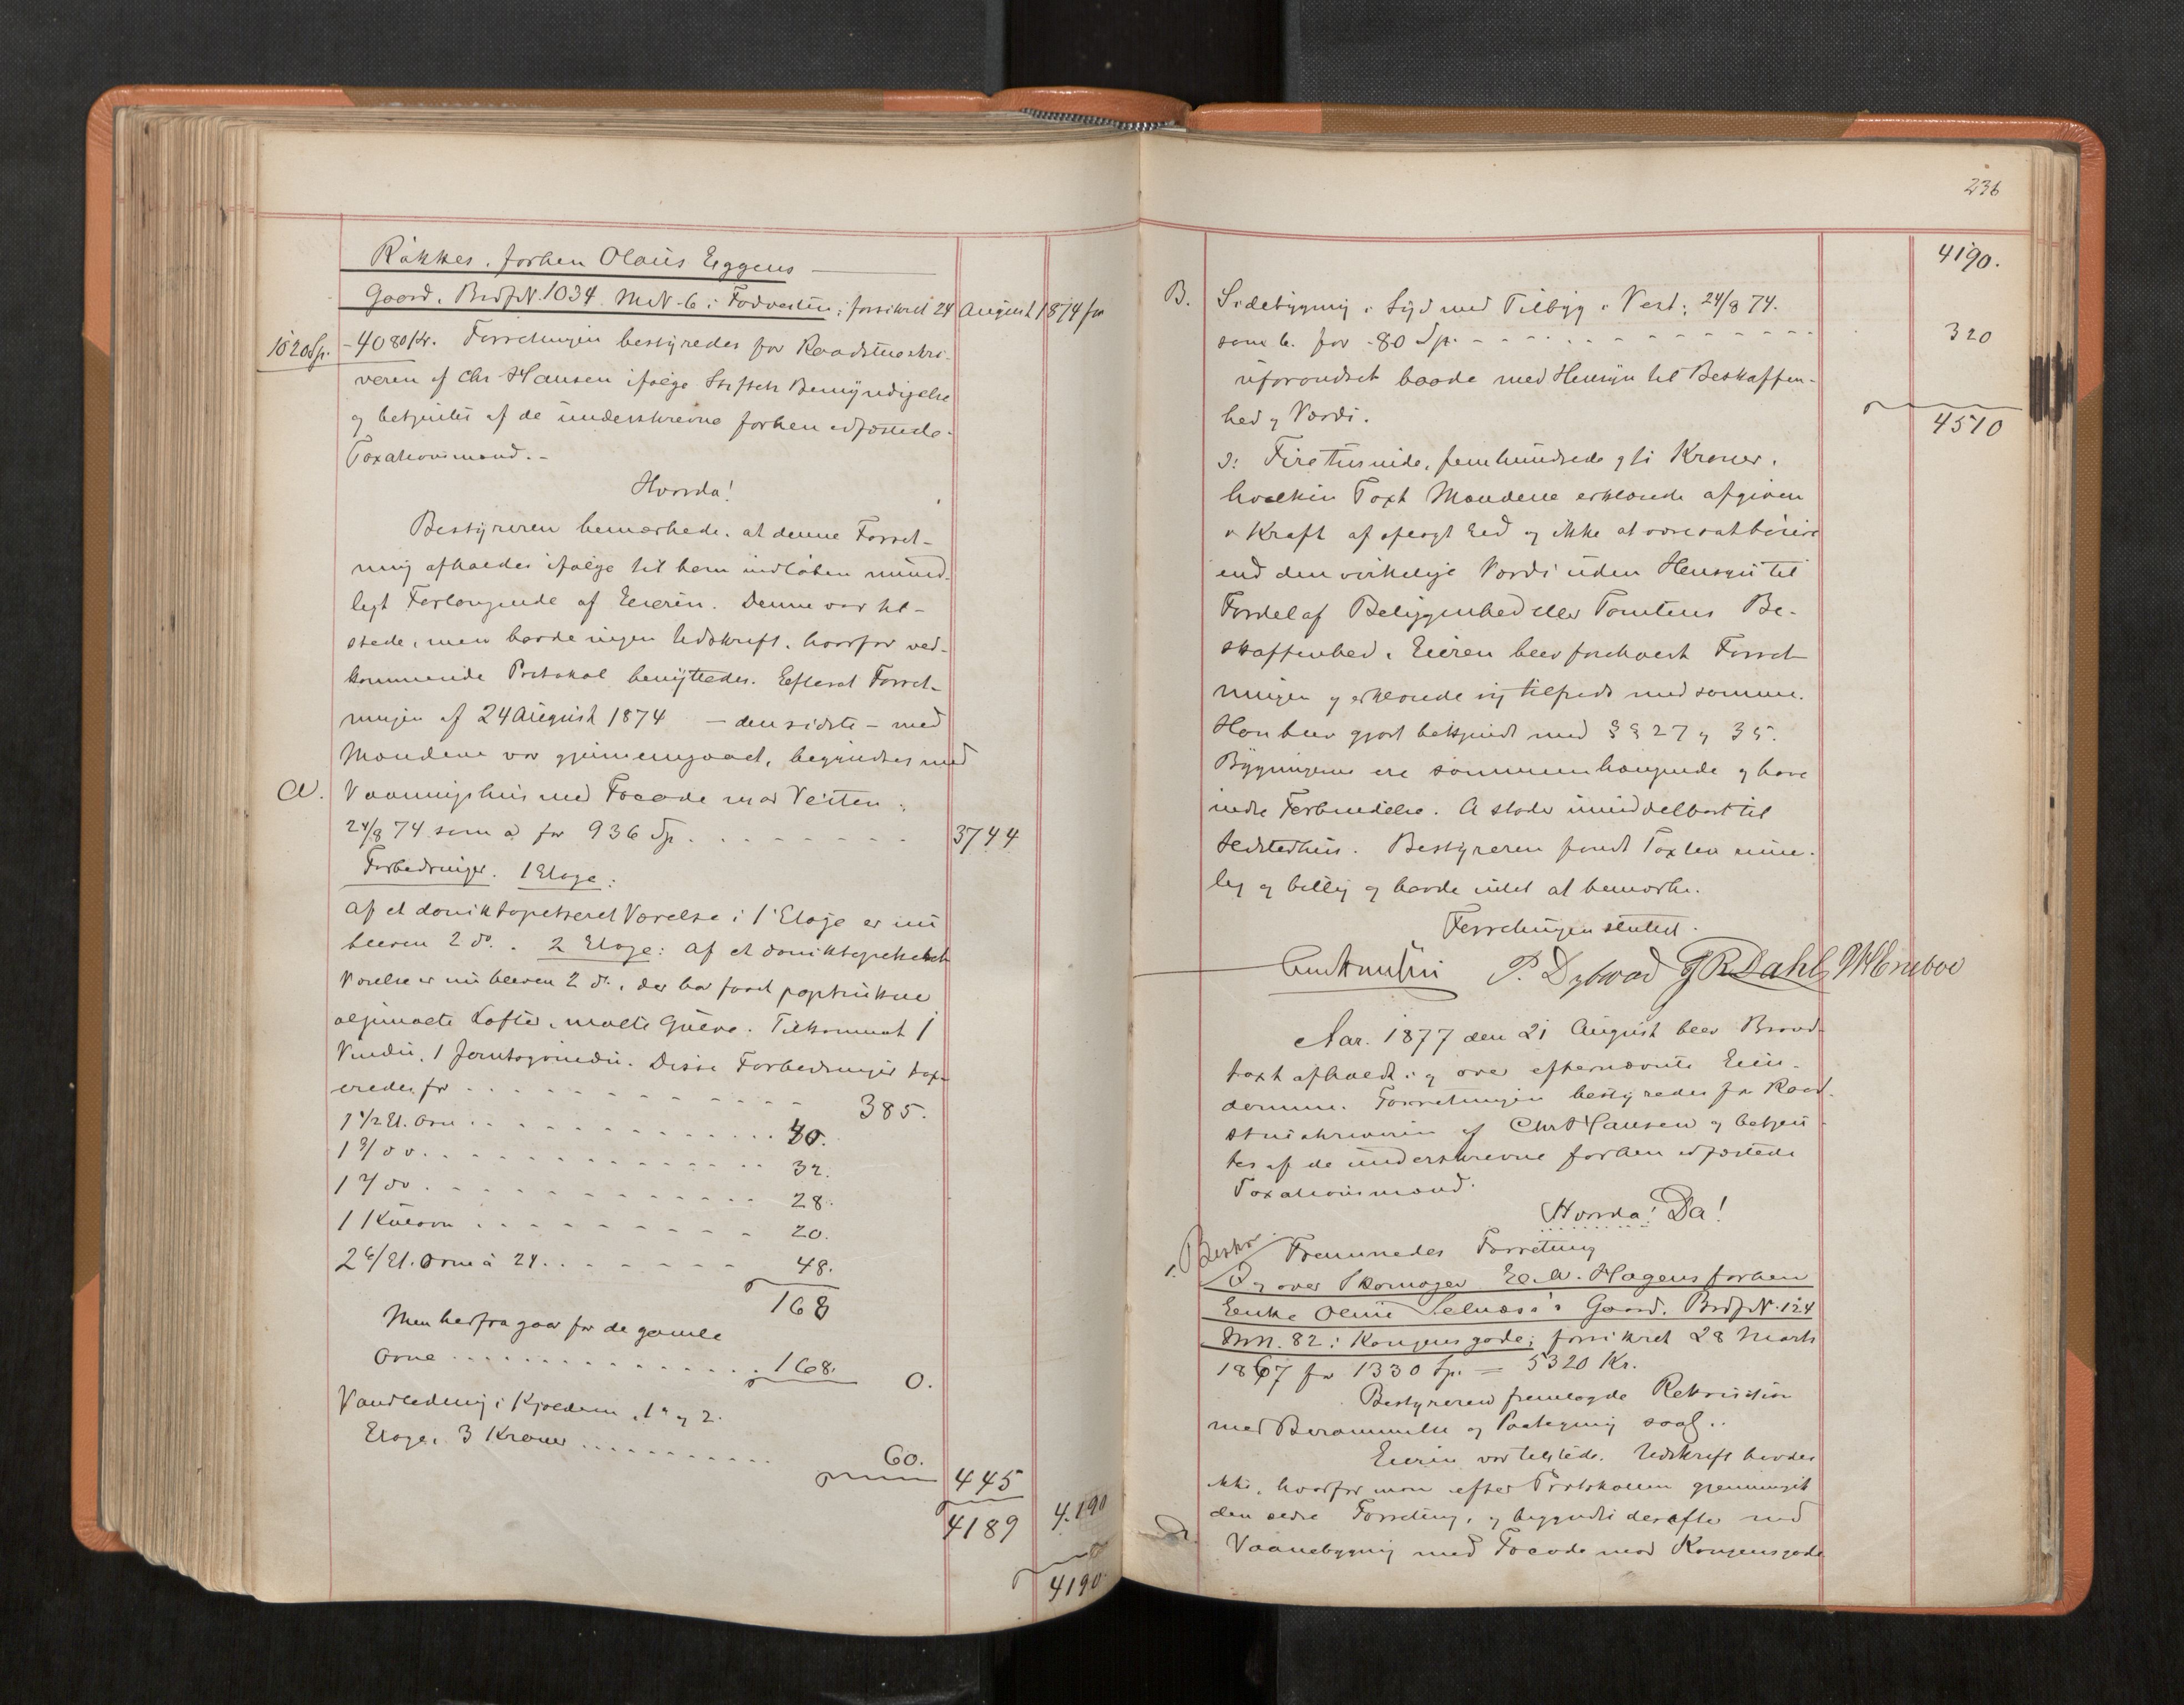 Rökkes, forhen Olaus Eggens
Gaard. BrdfN. 1034 MN-6 i Fodveiten; forsikret 24 August 1874 for
1020 Sp. - 4080 Kr. Forretningen bestyredes for Raadstueskri-
veren af Chr Hansen ifølge Stiftets Bemyndigelse
og betjentes af de underskrevne forhen edfæstede
Taxationsmænd.-
Hvorda!
Bestyreren bemærkede, at denne Forret-
ning afholdes ifølge til ham indløben mund-
ligt Forlangende af Eieren. Denne var til-
stede, men havde ingen Udskrift, hvorfor ved-
kommende Protokol benyttedes. Efterat Forret-
ningen af 24 August 1874 - den sidste - med
Mændene var gjennemgaaet, begyndtes med
A. Vaaningshus med Facade mod Veiten:
24/8 74 som a for 936 Sp. 3744
Forbedringer. 1 Etage:
Af et doniktapetseret Værelse i 1 Etage er nu
bleven 2 do. 2 Etage: Af et donik
Værelse er nu bleven 2 do, der har faaet paptrukne
oljemalte Lofter, malte Gulve. Tilkommet 1
Vindu, 1 Jerntagvindu. Disse Forbedringer tax-
eredes for 385.
1 4/2 Et. Ovn 40.
1 3/ do 32.
1 2/ do 28.
1 Kulovn 20.
2 4/ Et. Ovne à 24. 48.
168
Men herfra gaar for de gamle
Ovne 168. 0.
Vandledning i Kjælderen, 1 og 2
Etage, 3 Kraner 60.
445
4189 4.190
4190
236
4190.
B. Sidebygning i Syd med Tilbyg i Vest; 24/8 74.
som b. for 80 Sp. 320
uforandret baade med Hensyn til Beskaffen-
hed og Værdi.
4510
ɔ: Firetusinde, femhundrede og ti Kroner,
hvilken Taxt Mændene erklærede afgiven
i Kraft af aflagt Eed og ikke at være sat høiere
end den virkelige Værdi uden Hensyn til
Fordel af Beliggenhed eller Tomtens Be-
skaffenhed. Eieren blev forelæst Forret-
ningen og erklærede sig tilfreds med samme.
Han blev gjort bekjendt med §§ 27 og 35.
Bygningerne ere sammenhængende og have
indre Forbindelse. A støder umiddelbart til
Ildstedhus. Bestyreren fandt Taxten rime-
lig og billig og havde intet at bemærke.
Forretningen sluttet.
P. Dybwad G R Dahl
Aar. 1877 den 21 August blev Brand-
taxt afholdt i og over efternævnte Eien-
domme. Forretningen bestyredes for Raad-
stueskriveren af Chr Hansen og betjen-
tes af de underskrevne forhen edfæstede
Taxationsmænd.
Hvorda! Da!
Fremmedes Forretning
og over Skomager Hagens forhen
Enke Oline Selnæs's Gaard. BrdfN. 124
MN. 82 i Kongens gade; forsikret 28 Marts
1867 for 1330 Sp. = 5320 Kr.
Bestyreren fremlagde Rekvisition
med Berammelse og Paategning saal..
Eieren var tilstede. Udskrift havdes
ikke, hvorfor man efter Protokollen gjennemgik
den ældre Forretning, og begyndte derefter med
Vaanebygning med Facade mod Kongensgade